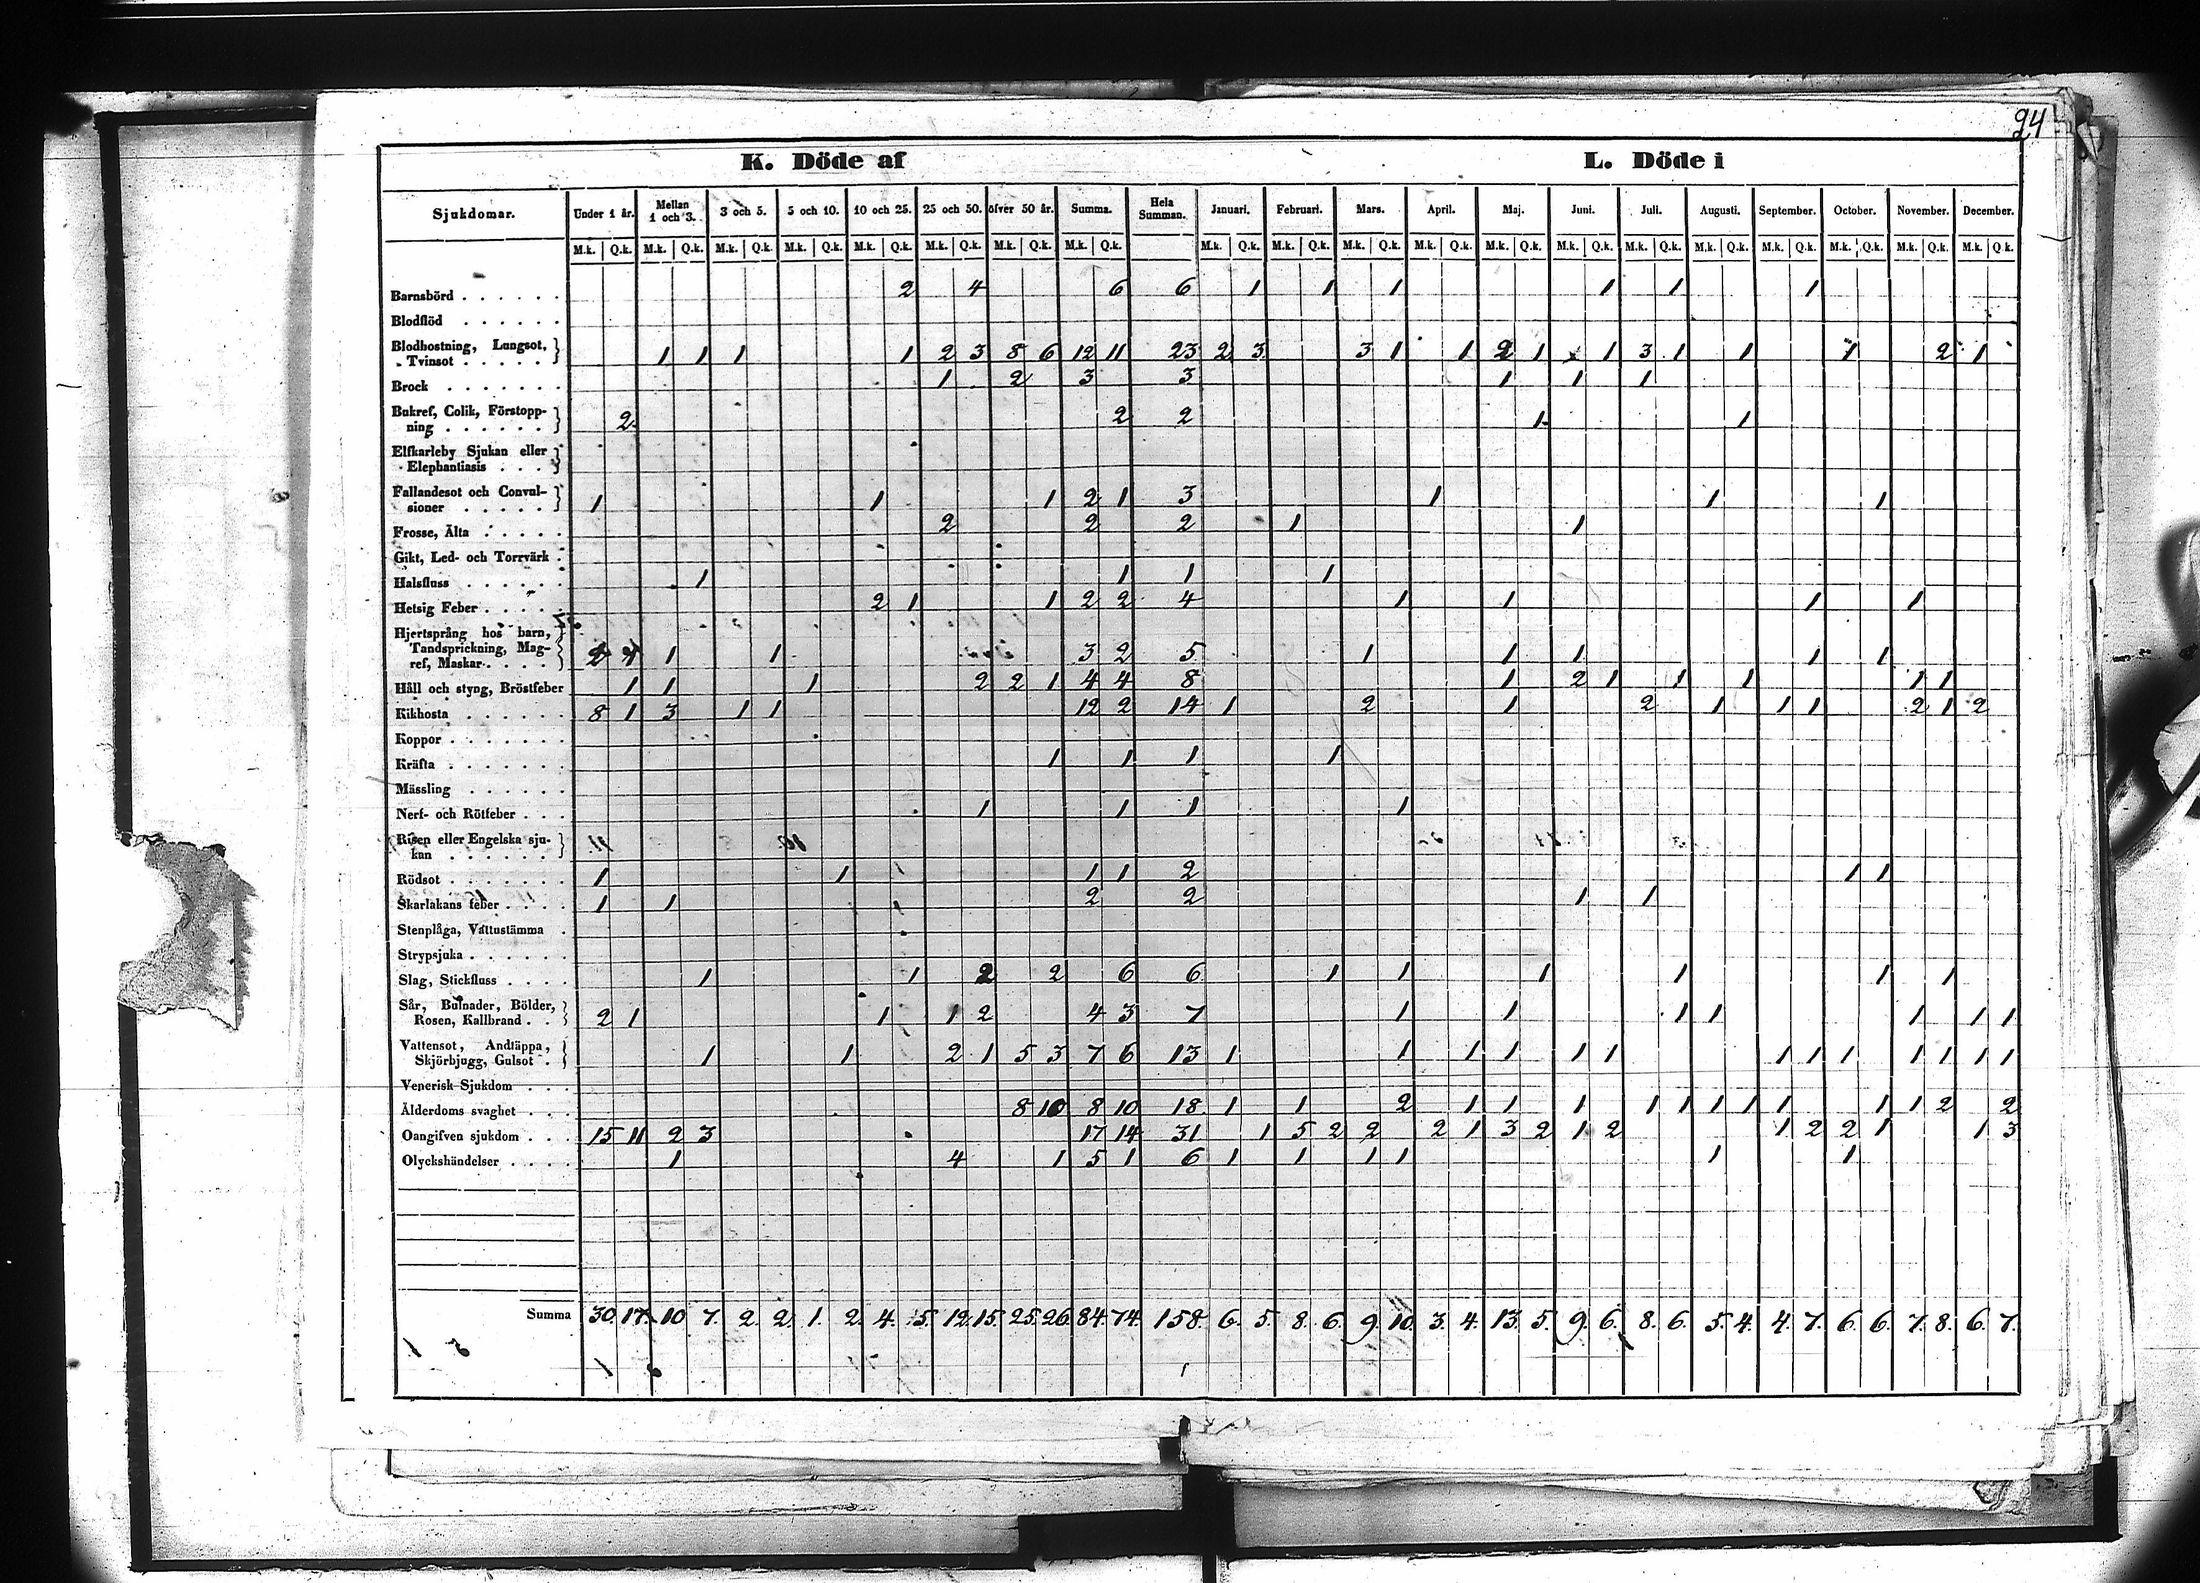 24
K. Döde af L. Döde i
Sjukdomar. Under 1 år. Mellan 1 och 3. 3 och 5. 5 och 10. 10 och 25. 25 och 50. öfver 50 år. Summa. Hela Summan. Januari. Februari. Mars. April. Maj. Juni. Juli. Augusti. September. October. November. December.
M.k. Q.k. M.k. Q.k. M.k. Q.k. M.k. Q.k. M.k. Q.k. M.k. Q.k. M.k. Q.k. M.k. Q.k. M.k. Q.k. M.k. Q.k. M.k. Q.k. M.k. Q.k. M.k. Q.k. M.k. Q.k. M.k. Q.k. M.k. Q.k. M.k. Q.k. M.k. Q.k. M.k. Q.k. M.k. Q.k.
Barnsbörd 2 4 6 6 1 1 1 1 1 1
Blodflöd
Blodhostning, Lungsot,
Tvinsot 1 1 1 1 2 3 8 6 12 11 23 2 3 3 1 1 2 1 1 3 1 1 1 2 1
Brock 1 2 3 3 1 1 1
Bukref, Colik, Förstopp-
ning 2 2 2 1 1
Elfkarleby Sjukan eller
Elephantiasis
Fallandesot och Convul-
sioner 1 1 1 2 1 3 1 1 1
Frosse, Älta 2 2 2 1 1
Gikt, Led- och Torrvärk
Halsfluss 1 1 1 1
Hetsig Feber 2 1 1 2 2 4 1 1 1 1
Hjertsprång hos barn,
Tandsprickning, Mag-
ref, Maskar 1 1 3 2 5 1 1 1 1 1
Håll och styng, Bröstfeber 1 1 1 2 2 1 4 4 8 1 2 1 1 1 1 1
Kikhosta 8 1 3 1 1 12 2 14 1 2 1 2 1 1 1 2 1 2
Koppor
Kräfta 1 1 1 1
Mässling
Nerf- och Rötfeber 1 1 1 1
Risen eller Engelska sju-
kan
Rödsot 1 1 1 1 2 1 1
Skarlakans feber 1 1 2 2 1 1
Stenplåga, Vattustämma
Strypsjuka
Slag, Stickfluss 1 1 2 2 6 6 1 1 1 1 1 1
Sår, Bulnader, Bölder,
Rosen, Kallbrand 2 1 1 1 2 4 3 7 1 1 1 1 1 1 1
Vattensot, Andtäppa,
Skjörbjugg, Gulsot 1 1 2 1 5 3 7 6 13 1 1 1 1 1 1 1 1 1 1 1 1 1
Venerisk Sjukdom
Ålderdoms svaghet 8 10 8 10 18 1 1 2 1 1 1 1 1 1 1 1 1 1 2 2
Oangifven sjukdom 15 11 2 3 17 14 31 1 5 2 2 2 1 3 2 1 2 1 2 2 1 1 3
Olyckshändelser 1 4 1 5 1 6 1 1 1 1 1 1
Summa 30. 17. 10 7. 2. 2. 1. 2. 4. 5. 12. 15. 25. 26. 84. 74. 158. 6. 5. 8. 6. 9. 10. 3. 4. 13. 5. 9. 6. 8. 6. 5. 4. 4. 7. 6. 6. 7. 8. 6. 7.